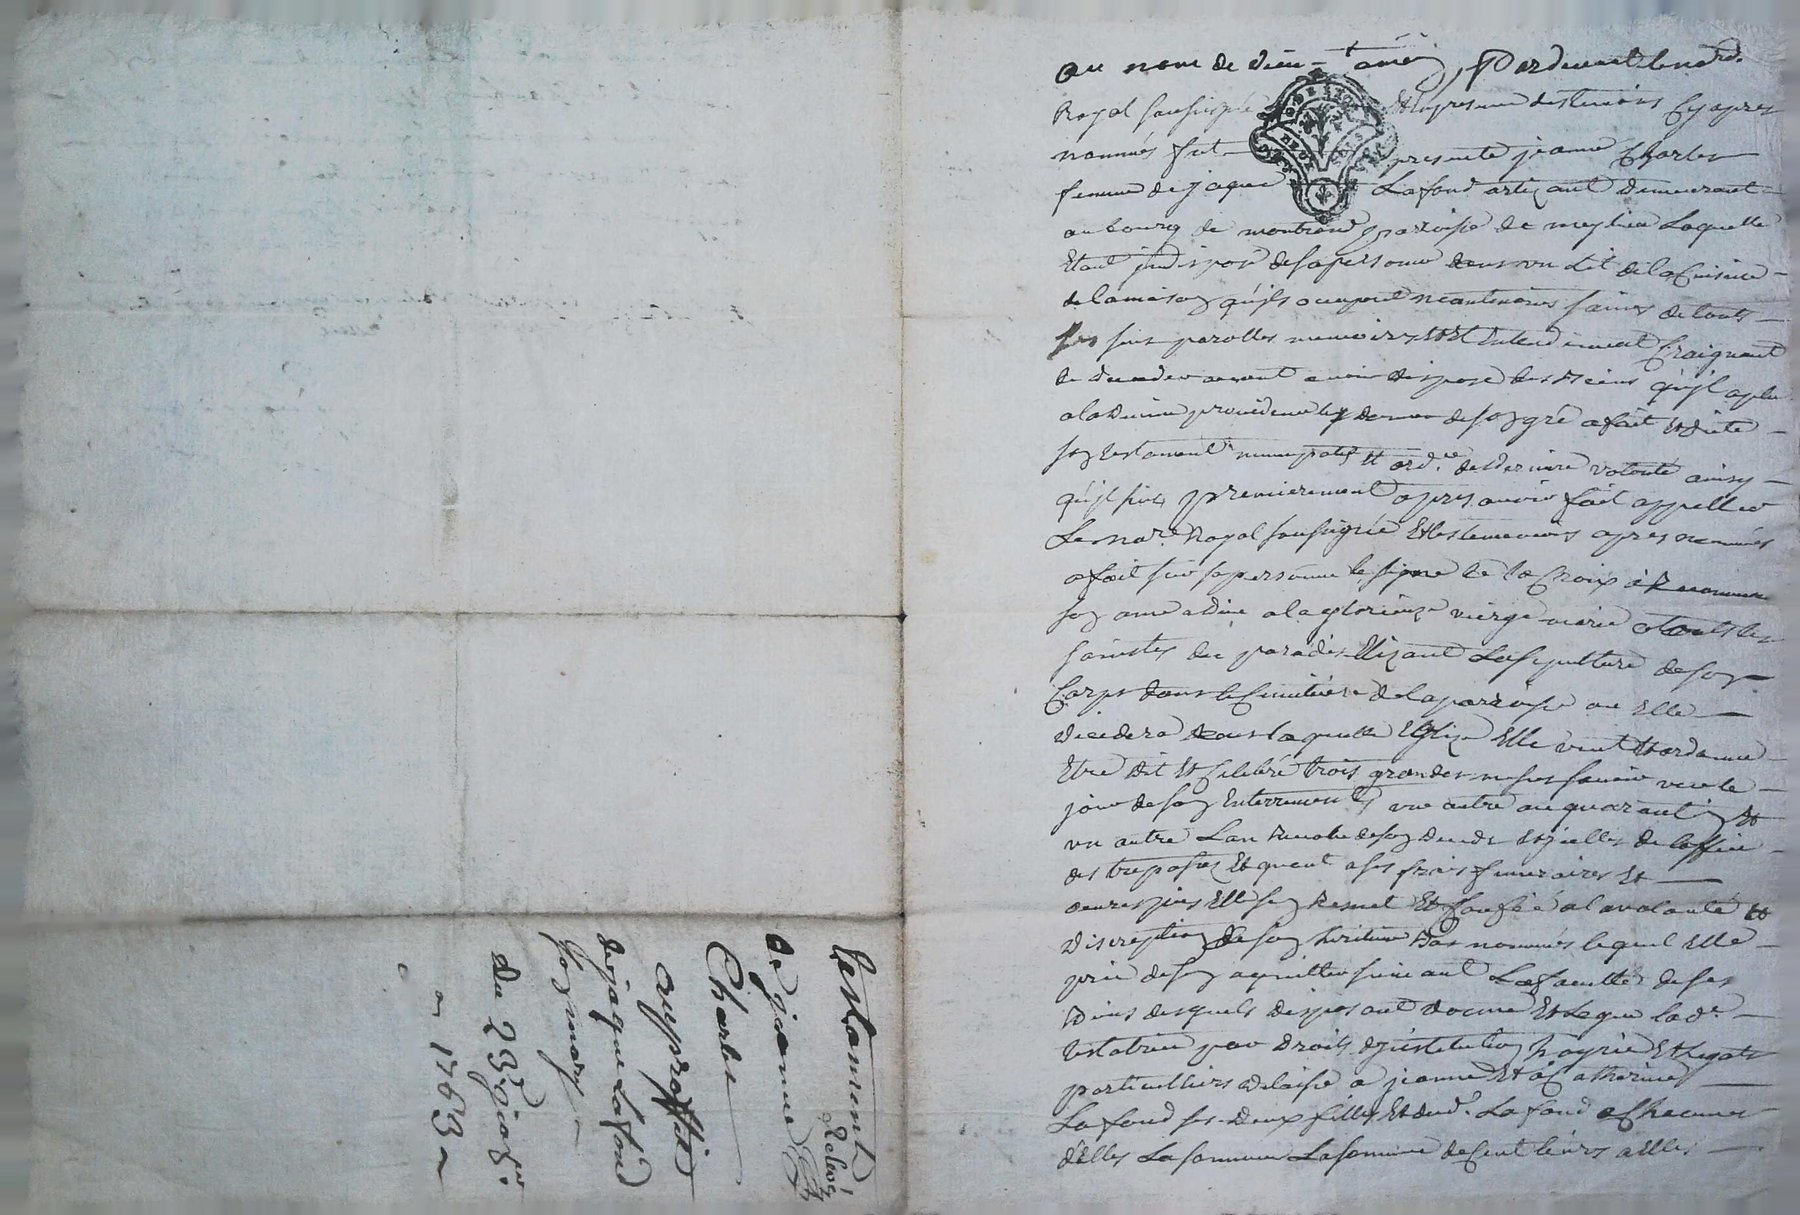 au nom de dieu amen Pardevant le no.re
Royal soussigné Et En presence des temoins Cy apres
nommés fut presente jeanne Charles
femme de jaque Lafond artizant Demeurant
au bourg de montrond parroisse de meylieu Laquelle
Etant jndisposé de sa personne dans un Lit de la Cuisine
de la maison qu'ils occupent neantmoins saine de touts
ses sens parolles memoire Et Entendement Craignant
de deceder avant avoir disposé des Biens qu'jl a plu
a la Divine providence de son gré a fait Et dicté
son testament nuncupatif Et ord.ce de derniere volonté ainsy
qu'jl suit premierement apres avoir fait appeller
Le no.re Royal soussigné Et les temoins apres nommés
a fait sur sa personne le signe de la Croix a Recommandé
son ame a dieu a la glorieuze vierge marie a touts les
saintes du paradis Elizant La sepulture de son
Corps dans le Cimitiere de la parroisse ou Elle
decedera dans laquelle Eglize Elle veut Et ordonne
Etre dit Et Celebré trois grandes messes savoir une le
jour de son Enterrement une autre au quarantin Et
un autre Lan Revolu de son deceds
des trepassés Et quant a ses frais funeraires Et
oeuvres pies Elle sen Remet Et Confie a la volonté Et
discreption de son heritier Bas nommés lequel Elle
prie de sen acquitter suivant La faculté de ses
Biens desquels disposant donne Et Legue la d.e
testatrice par droits d'jnstitution hoyrie Et legats
particulliers delaisse a jeanne Et a Catherine
Lafond ses deux filles Et dud.t Lafond a Chacunes
d'elles La somme La somme de Cent livres a Elles
Testament
de jeanne
Charles
au proffit
de jaque Lafond
son mary
Du 23.e
1763